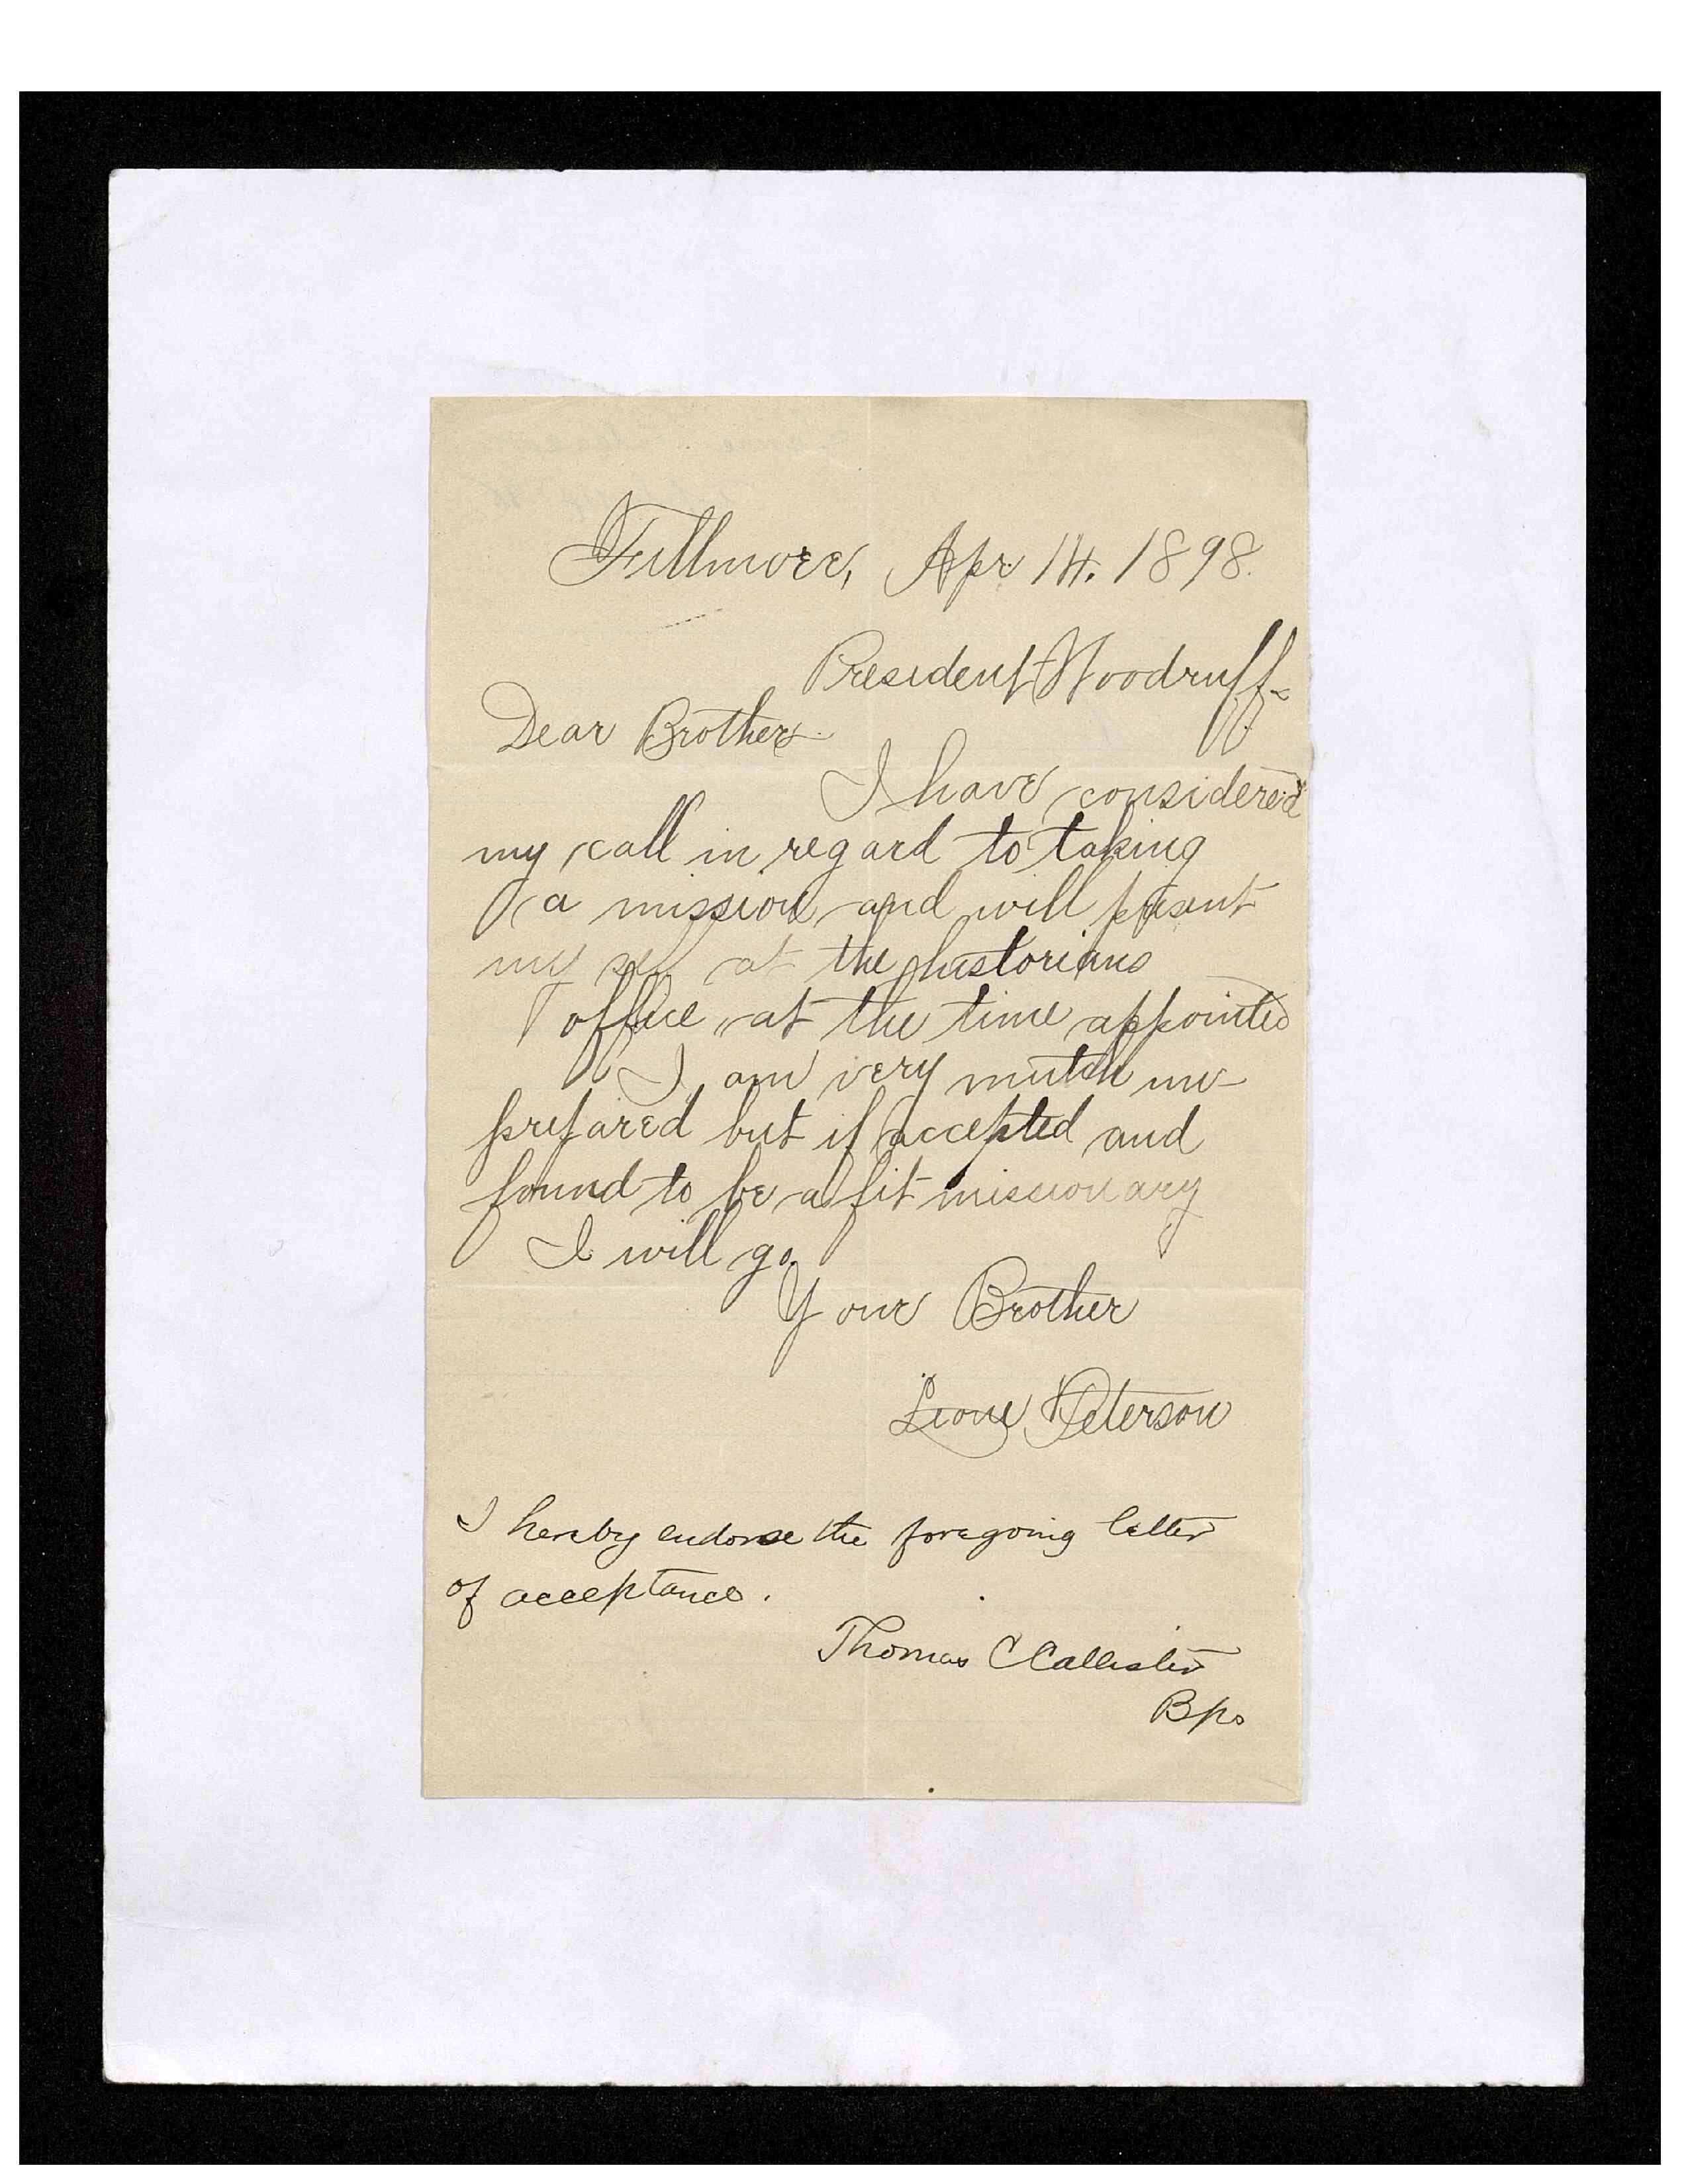 Fillmore, Apr 14. 1898.
President Woodruff-
Dear Brother.
I have considered
my call in regard to taking
a mission and will presant
my self at the historians
office at the time appointed
I am very mutch un-
prepared but if accepted and
found to be a fit missionary
I will go.
Your Brother
Leone Peterson
I hereby endorse the foregoing letter
of acceptance.
Thomas C Callister
Bp